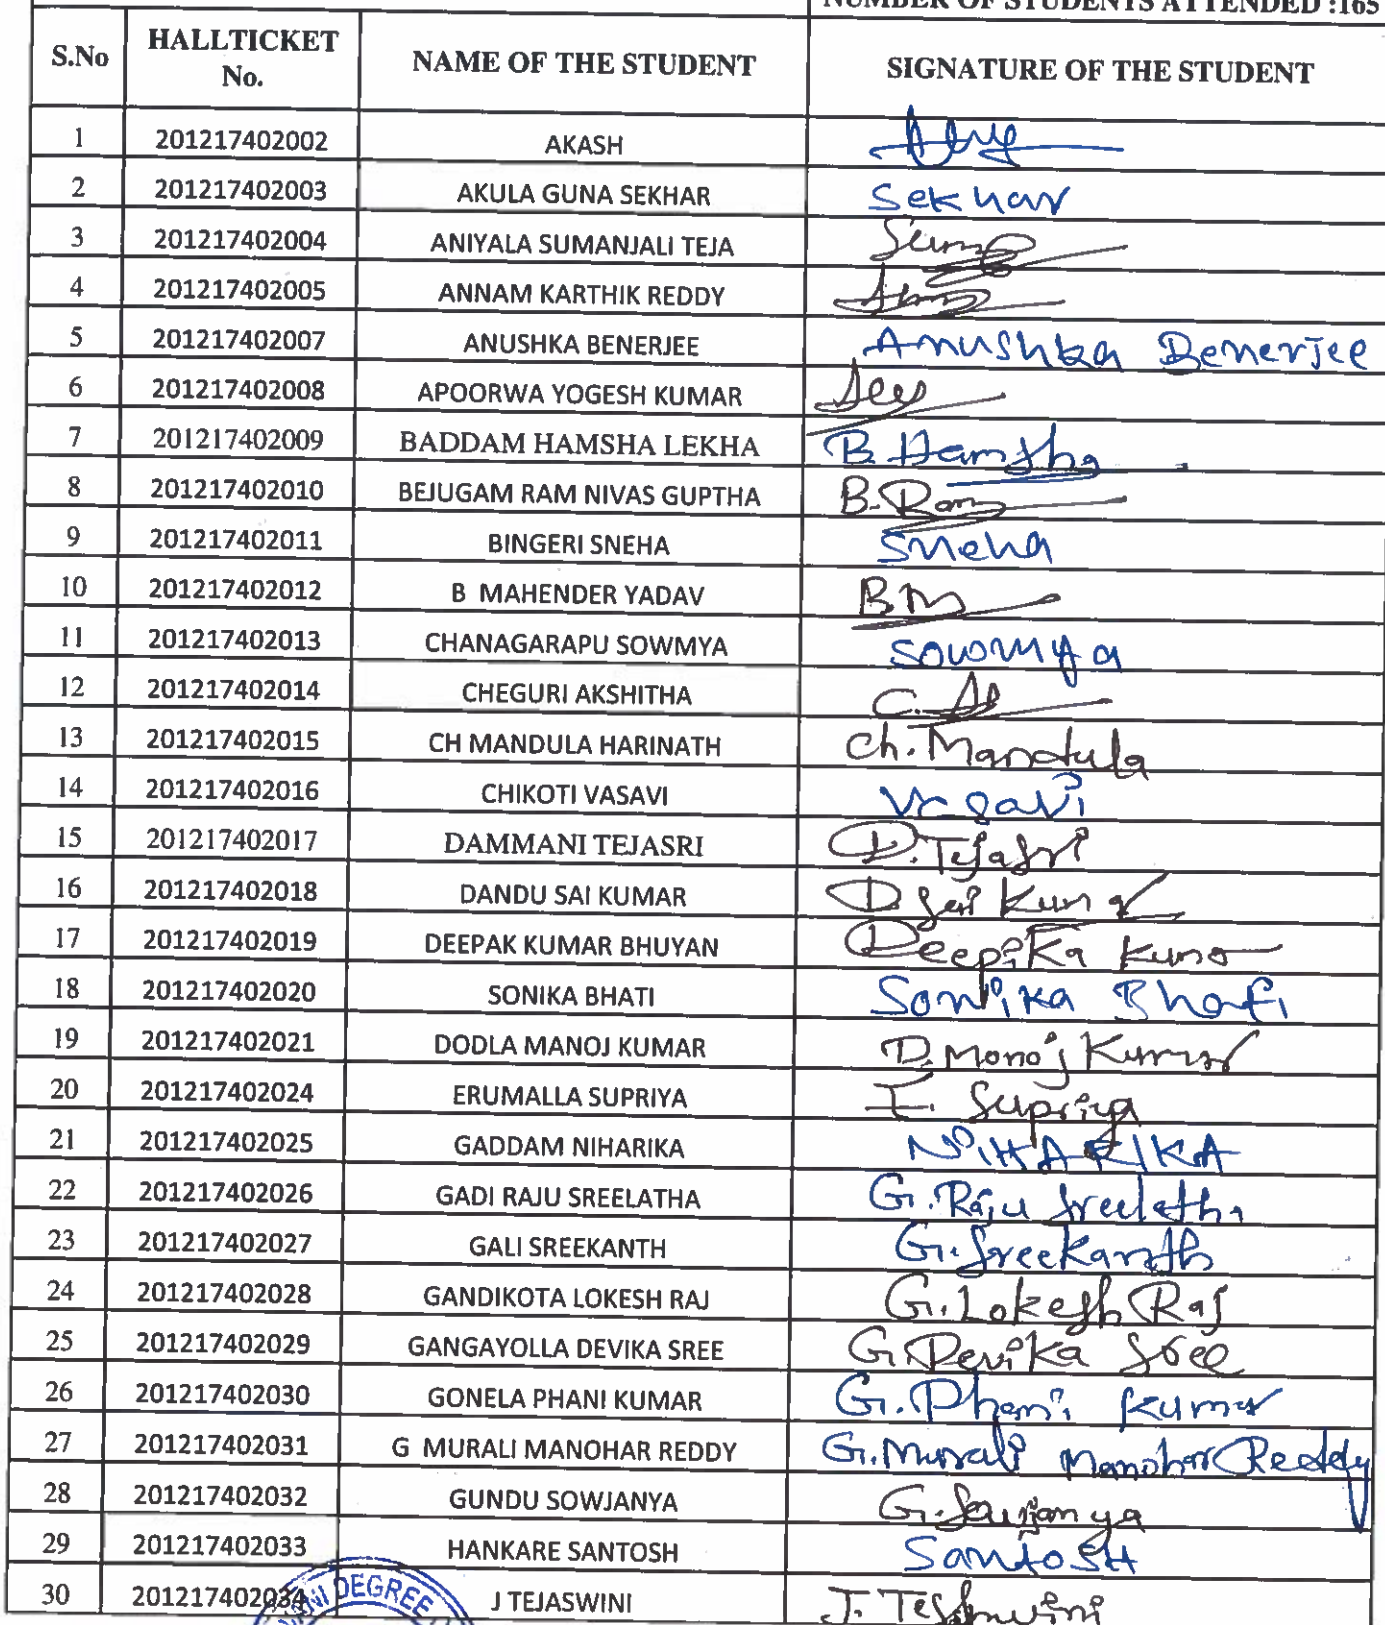 NUMBER OF STUDENTS ATTENDED :165
S.No HALLTICKET No. NAME OF THE STUDENT SIGNATURE OF THE STUDENT
1 201217402002 AKASH
2 201217402003 AKULA GUNA SEKHAR Sekhar
3 201217402004 ANIYALA SUMANJALI TEJA
4 201217402005 ANNAM KARTHIK REDDY
5 201217402007 ANUSHKA BENERJEE Anushka Benerjee
6 201217402008 APOORWA YOGESH KUMAR
7 201217402009 BADDAM HAMSHA LEKHA B. Hamsha
8 201217402010 BEJUGAM RAM NIVAS GUPTHA B. Ram
9 201217402011 BINGERI SNEHA Sneha
10 201217402012 B MAHENDER YADAV B M
11 201217402013 CHANAGARAPU SOWMYA Sowmya
12 201217402014 CHEGURI AKSHITHA
13 201217402015 CH MANDULA HARINATH Ch. Mandula
14 201217402016 CHIKOTI VASAVI Vasavi
15 201217402017 DAMMANI TEJASRI D. Tejasri
16 201217402018 DANDU SAI KUMAR D Sai Kumar
17 201217402019 DEEPAK KUMAR BHUYAN Deepika
18 201217402020 SONIKA BHATI Sonika Bhati
19 201217402021 DODLA MANOJ KUMAR D. Manoj Kumar
20 201217402024 ERUMALLA SUPRIYA E. Supriya
21 201217402025 GADDAM NIHARIKA NIHARIKA
22 201217402026 GADI RAJU SREELATHA G. Raju Sreelatha
23 201217402027 GALI SREEKANTH G. Sreekanth
24 201217402028 GANDIKOTA LOKESH RAJ G. Lokesh Raj
25 201217402029 GANGAYOLLA DEVIKA SREE G. Devika Sree
26 201217402030 GONELA PHANI KUMAR G. Phani Kumar
27 201217402031 G MURALI MANOHAR REDDY G. Murali Manohar Reddy
28 201217402032 GUNDU SOWJANYA G. Sowjanya
29 201217402033 HANKARE SANTOSH Santosh
30 201217402034 J TEJASWINI J. Tejaswini
DEGREE